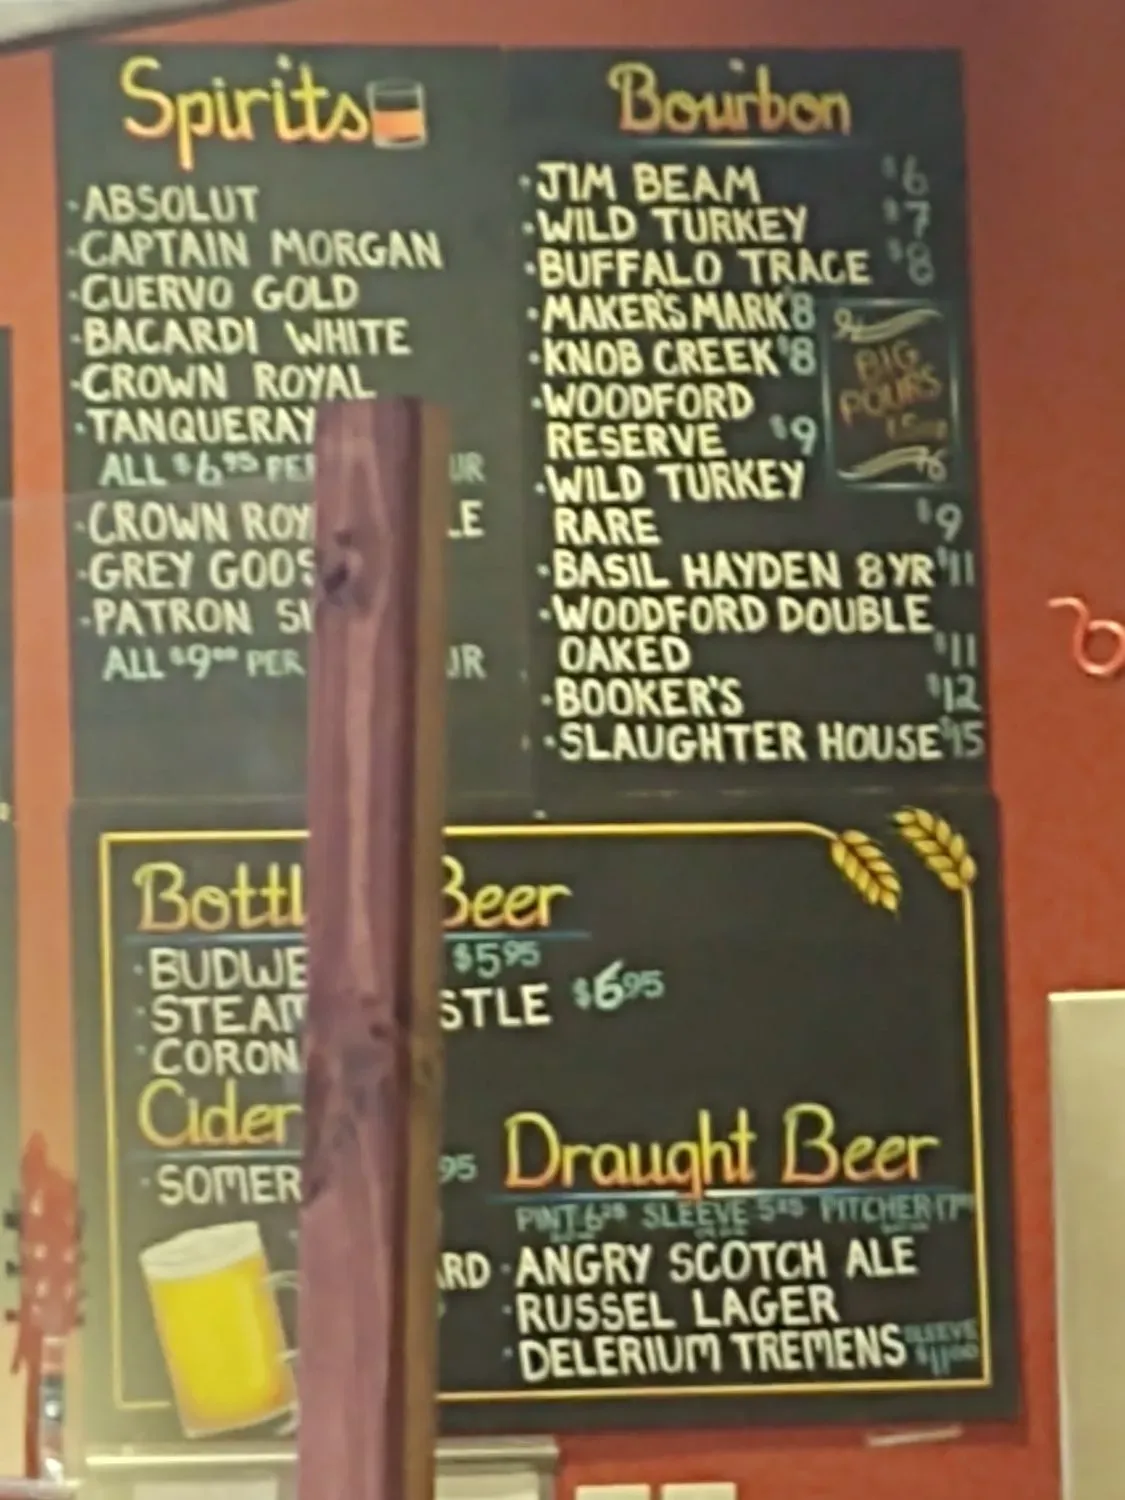 Spirits
·ABSOLUT
·CAPTAIN MORGAN
·CUERVO GOLD
·BACARDI WHITE
·CROWN ROYAL
·TANQUERAY
ALL $6.95 PER
·CROWN
·GREY
·PATRON
ALL $9.00 PER
Bourbon
·JIM BEAM $6
·WILD TURKEY $7
·BUFFALO TRACE $8
·MAKER'S MARK $8
·KNOB CREEK $8
·WOODFORD
RESERVE $9
·WILD TURKEY
RARE $9
·BASIL HAYDEN 8YR $11
·WOODFORD DOUBLE
OAKED $11
·BOOKER'S $12
·SLAUGHTER HOUSE $15
BIG
POURS
Beer
$5.95
$6.95
Cider
Draught Beer
PINT SLEEVE PITCHER
·ANGRY SCOTCH ALE
·RUSSEL LAGER
·DELERIUM TREMENS SLEEVE
$11.00